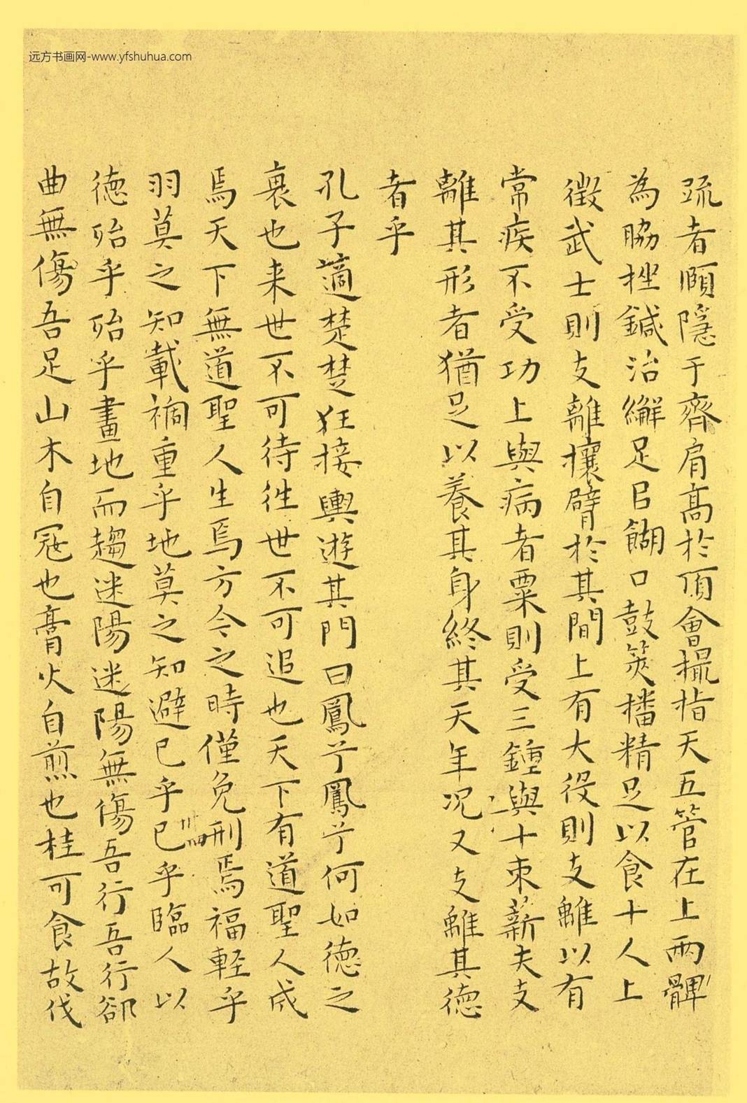 远方书画网-www.yfshuhua.com
疏者頤隱于齊肩高於頂會撮指天五管在上兩髀
為脇挫鍼治繲足㠯餬口鼓筴播精足以食十人上
徵武士則支離攘臂於其間上有大役則支離以有
常疾不受功上與病者粟則受三鍾與十束薪夫支
離其形者猶足以養其身終其天年况又支離其德
者乎
孔子適楚楚狂接輿遊其門曰鳳兮鳳兮何如德之
衰也来世不可待往世不可追也天下有道聖人成
焉天下無道聖人生焉方今之時僅免刑焉福輕乎
羽莫之知載禍重乎地莫之知避已乎已乎臨人以
德殆乎殆乎畫地而趨迷陽迷陽無傷吾行吾行郤
曲無傷吾足山木自寇也膏火自煎也桂可食故伐